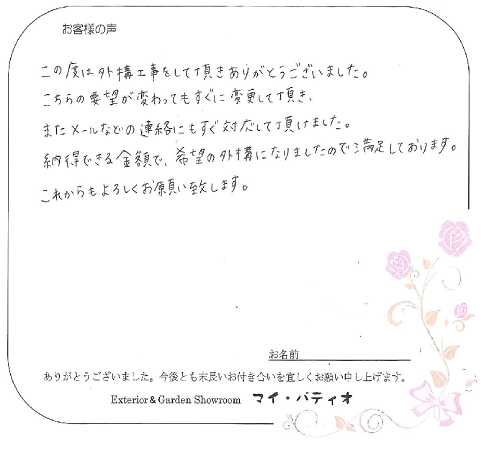 お客様の声
この度は外構工事をして頂きありがとうございました。
こちらの要望が変わってもすぐに変更して頂き、
またメールなどの連絡にもすぐ対応して頂けました。
納得できる金額で、希望の外構になりましたので満足しております。
これからもよろしくお願い致します。
お名前
ありがとうございました。今後とも末長いお付き合いを宜しくお願い申し上げます。
Exterior & Garden Showroom マイ・パティオ